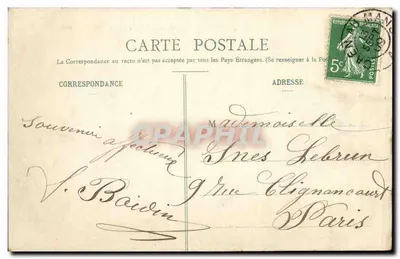 CARTE POSTALE
La Correspondance au recto n'est pas acceptée par tous les Pays Etrangers. (Se renseigner à la Poste)
CORRESPONDANCE
ADRESSE
Souvenir affectueux
S. Boidin
Mademoiselle
Ines Lebrun
9 rue Clignancourt
Paris
5c
POSTES